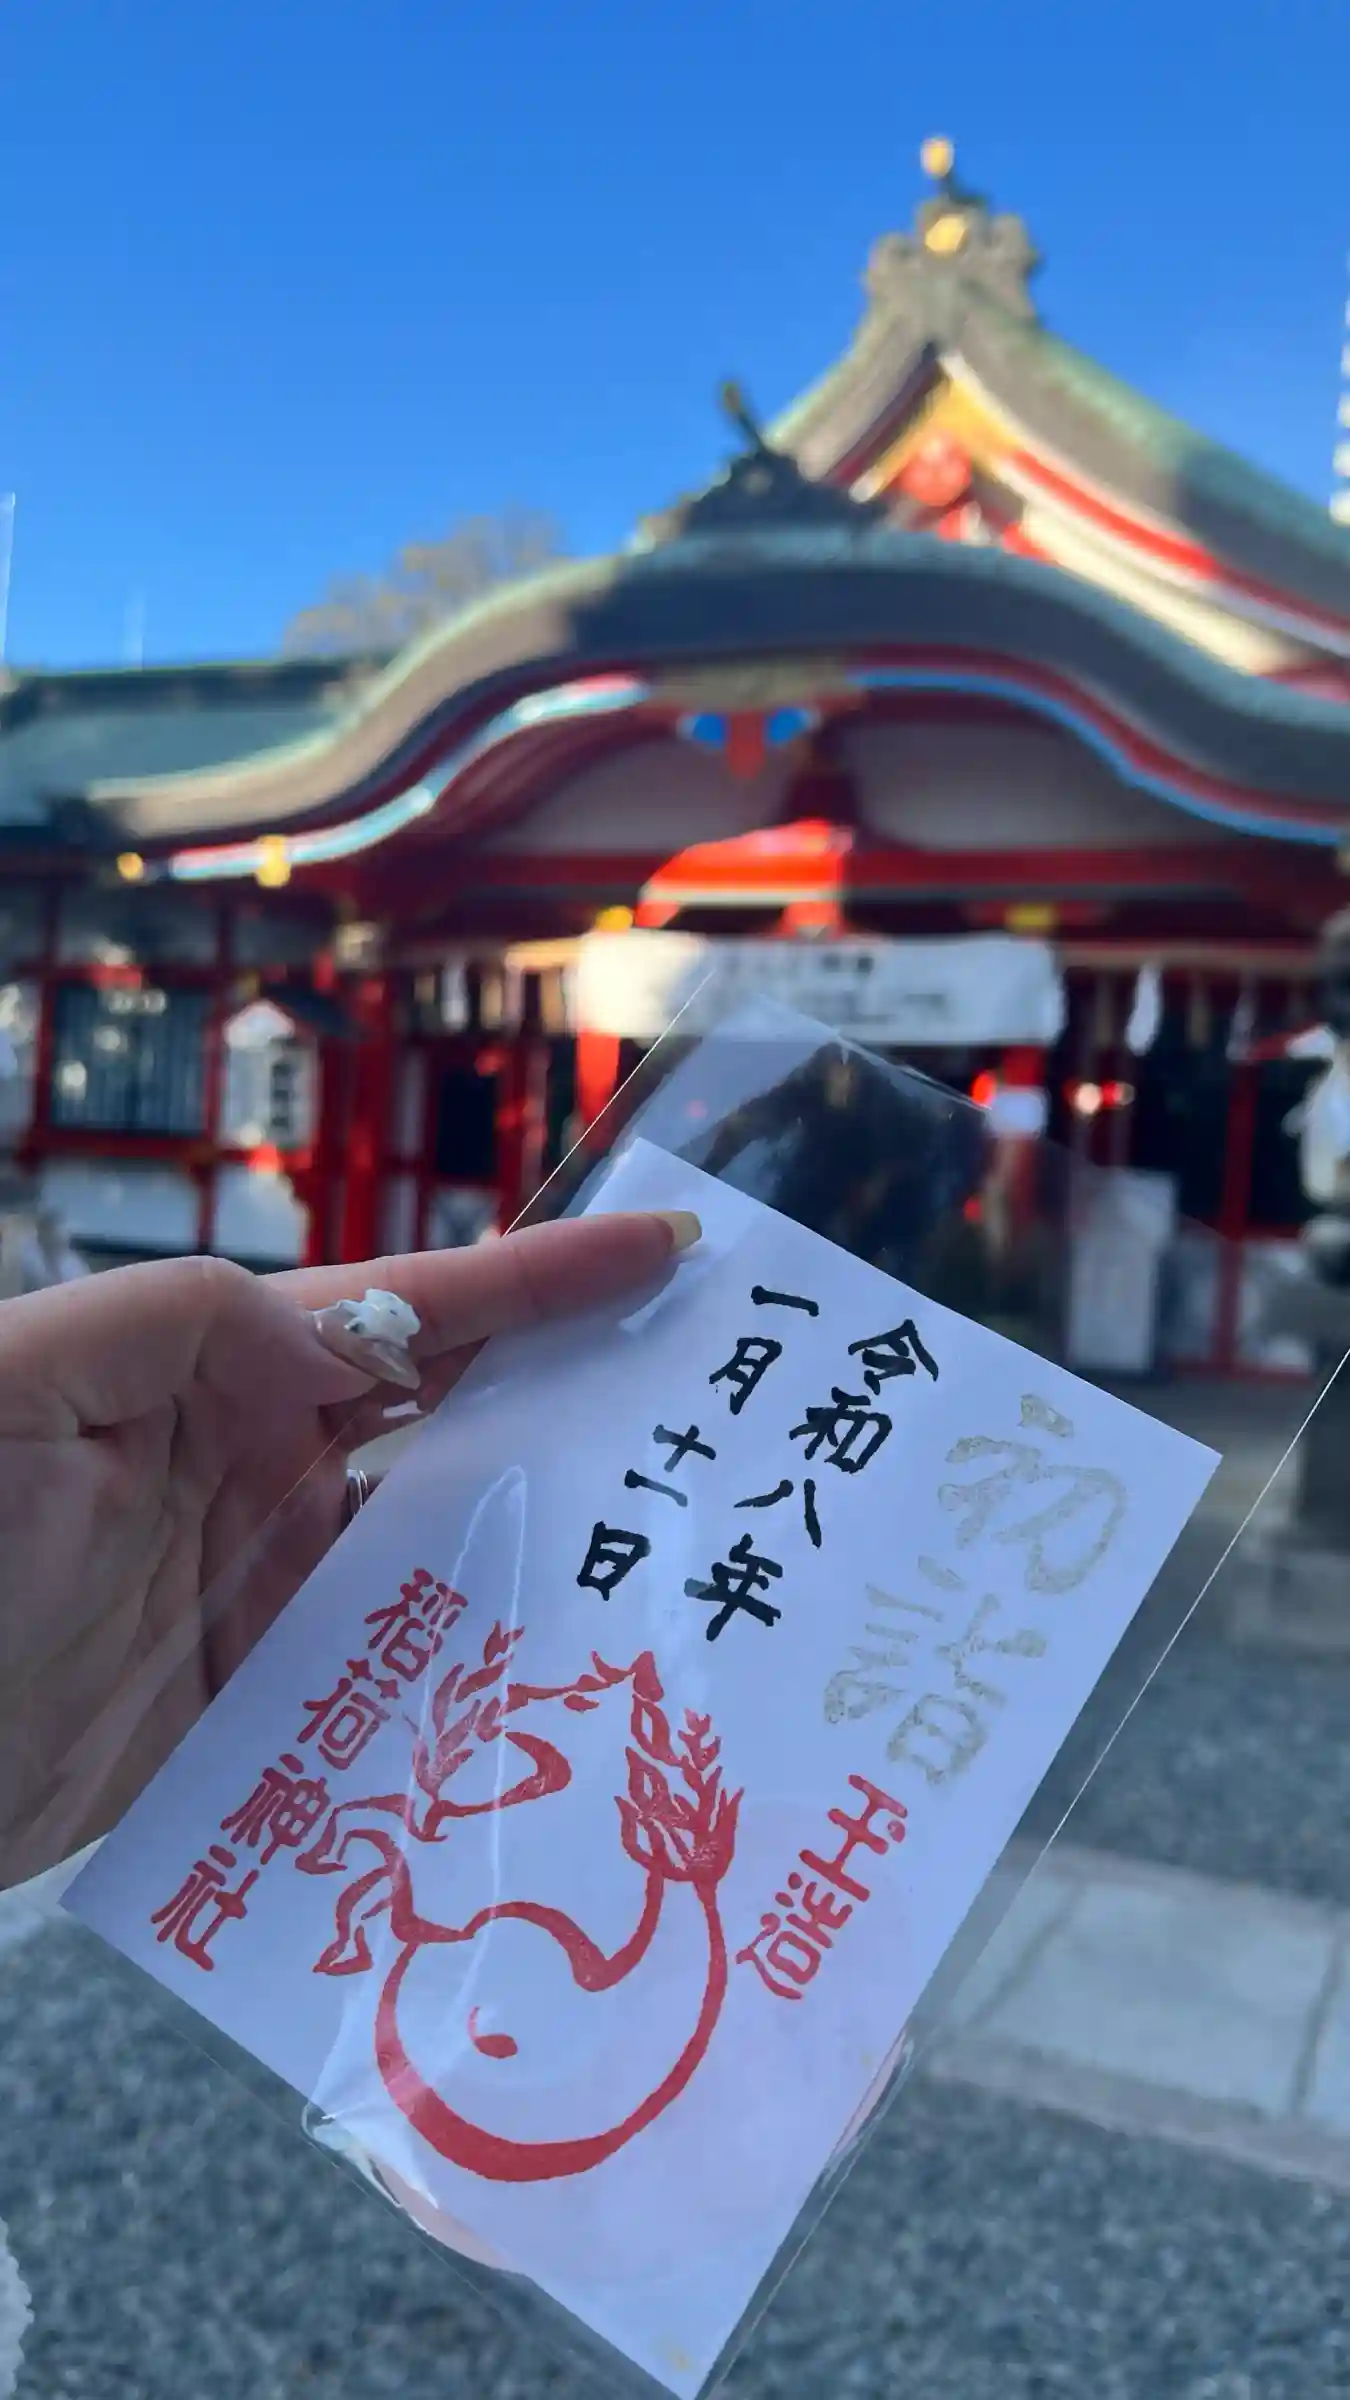 初詣
玉造
令和八年
一月十一日
稲荷神社